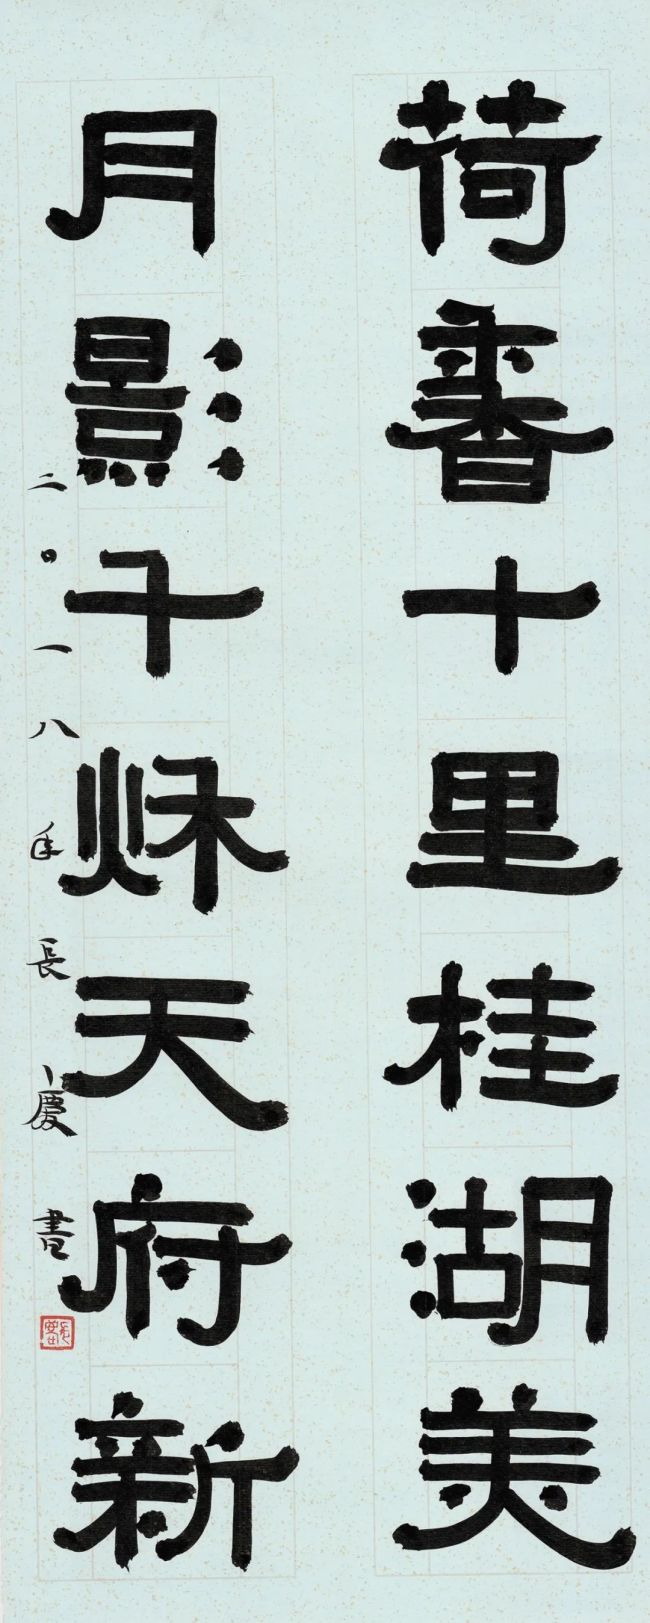 荷香十里桂湖美
月影千秌天府新
二〇一八年長慶書